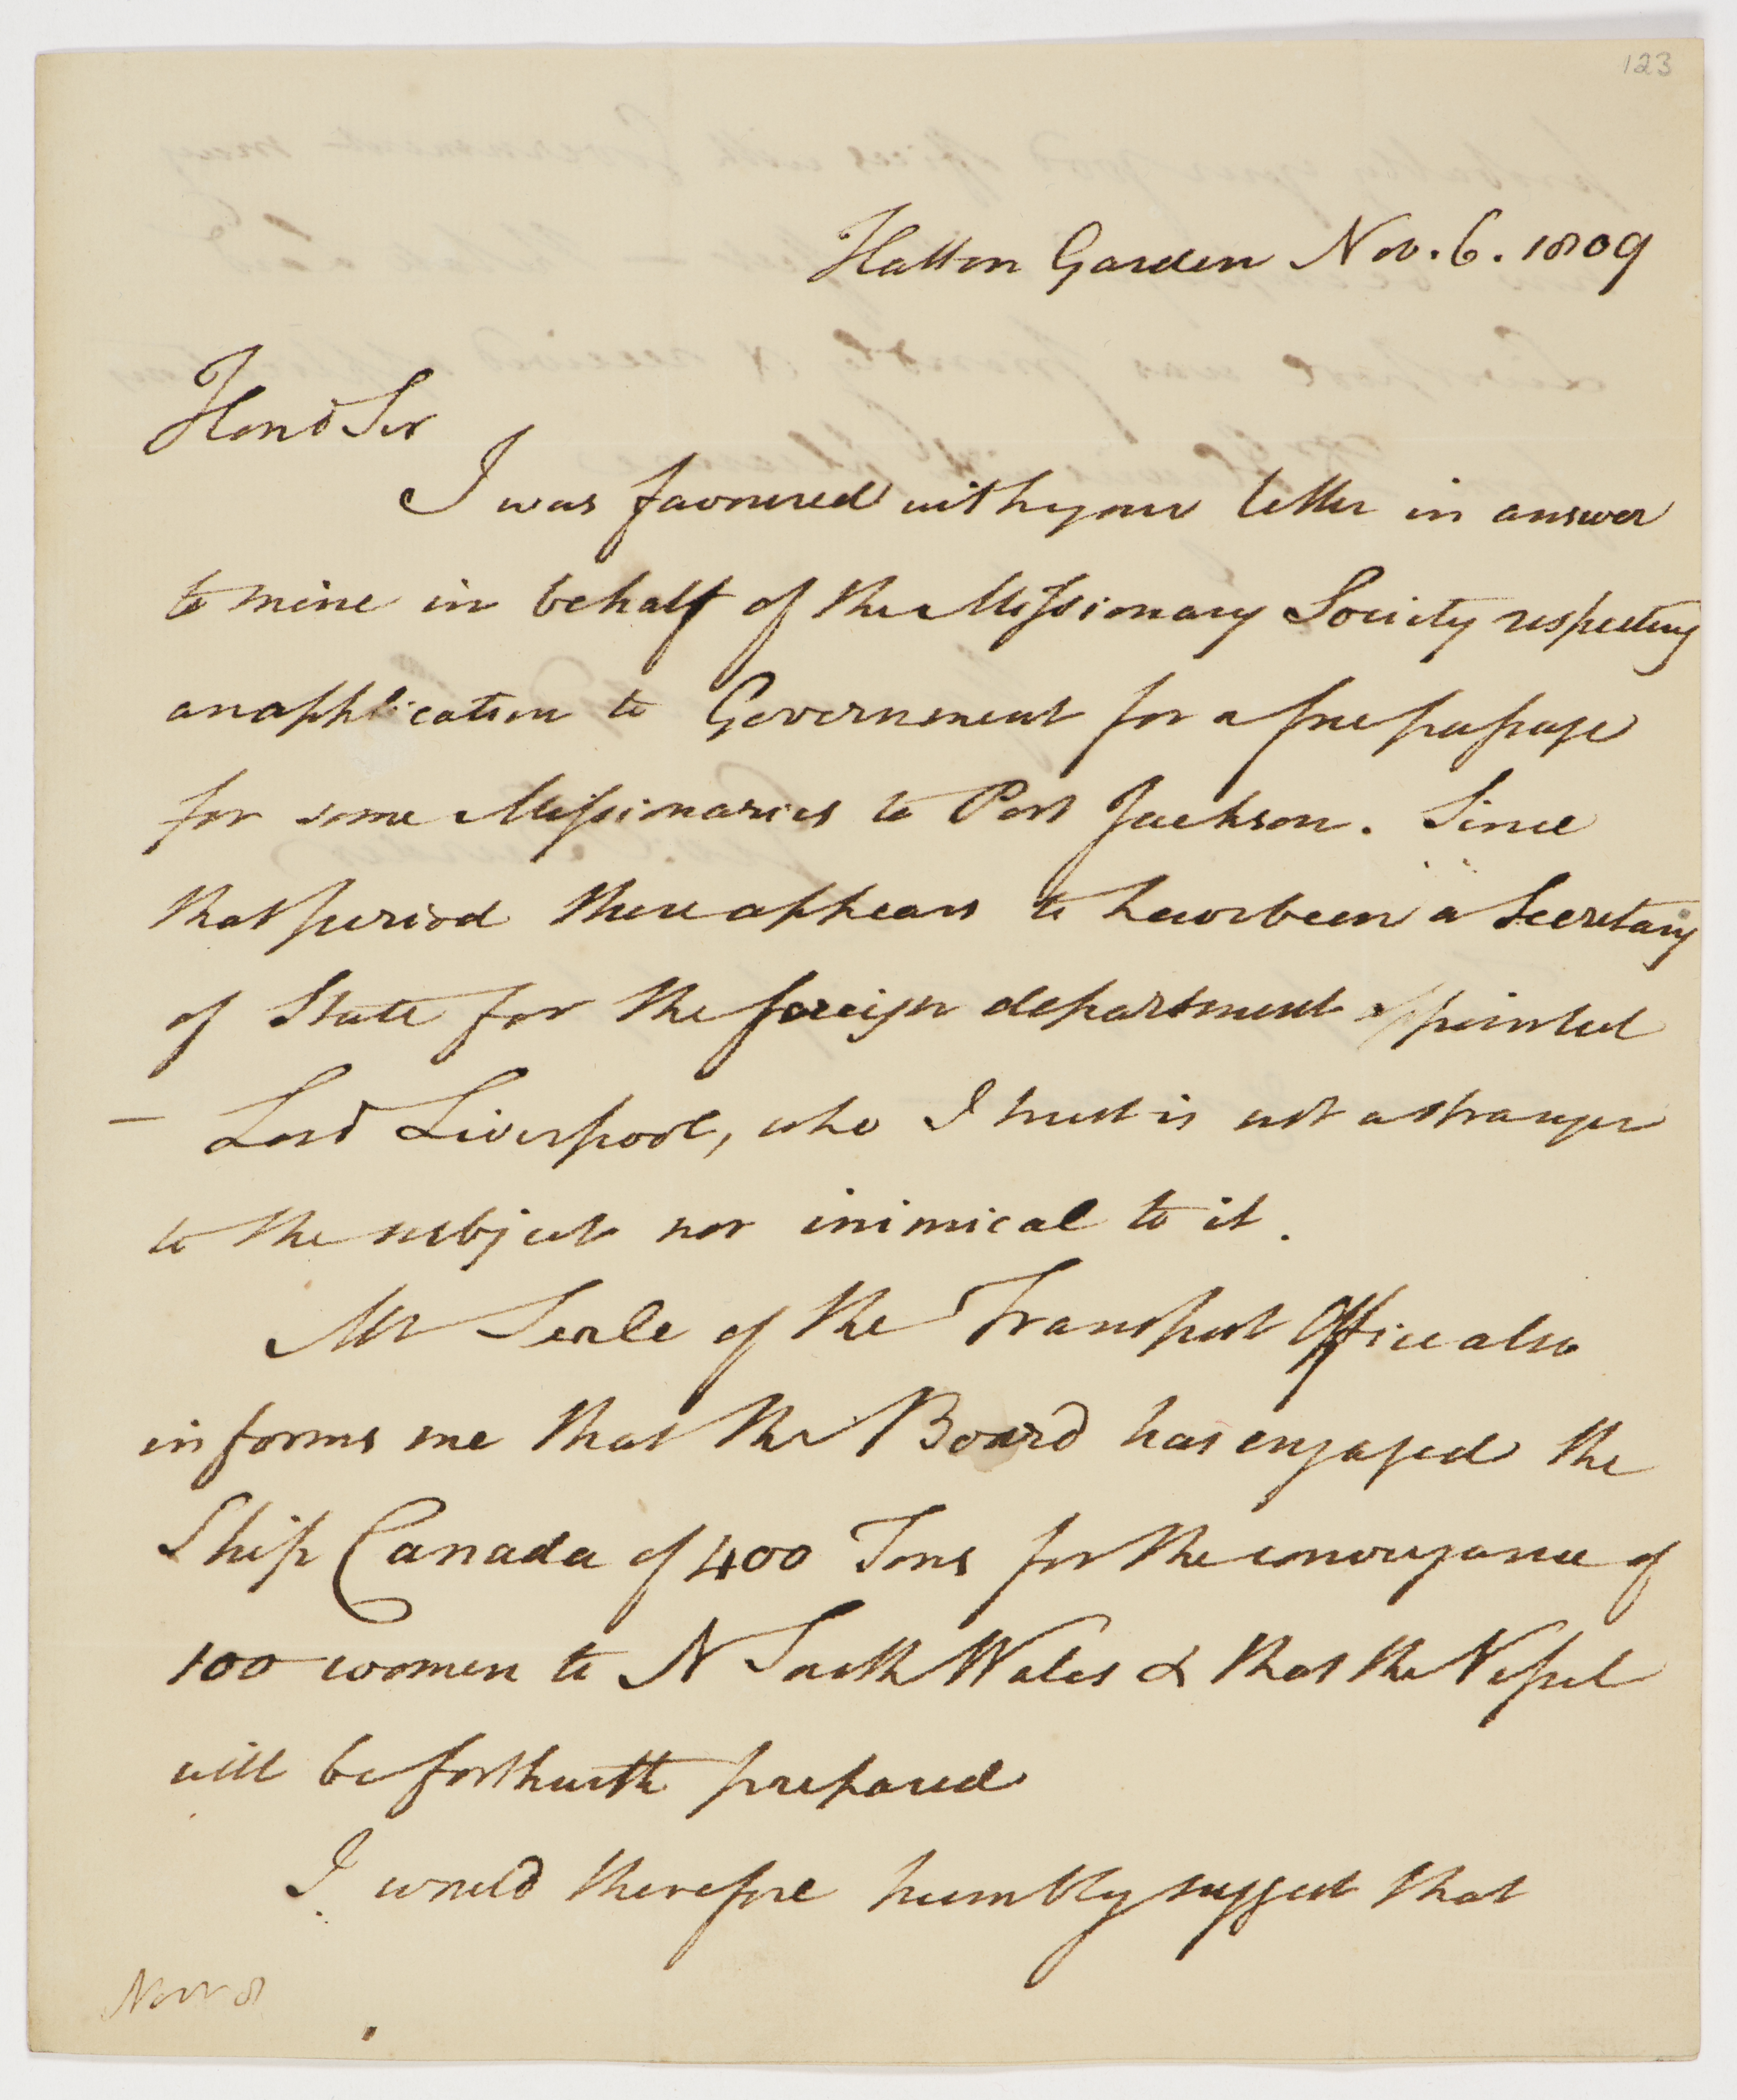 123
Hatton Garden Nov. 6. 1809
Hond Sir
I was favoured with your letter in answer
to mine in behalf of the Missionary Society respecting
an application to Government for a free passage
for some Missionaries to Port Jackson. Since
that period there appears to have been a Secretary
of State for the foreign department appointed
— Lord Liverpool, who I trust is not a stranger
to the subject nor inimical to it.
Mr Serle of the Transport Office also
informs me that the Board has engaged the
Ship Canada of 400 Tons for the conveyance of
100 women to N South Wales & that the Vessel
will be forthwith prepared
I would therefore humbly suggest that
Novr 8